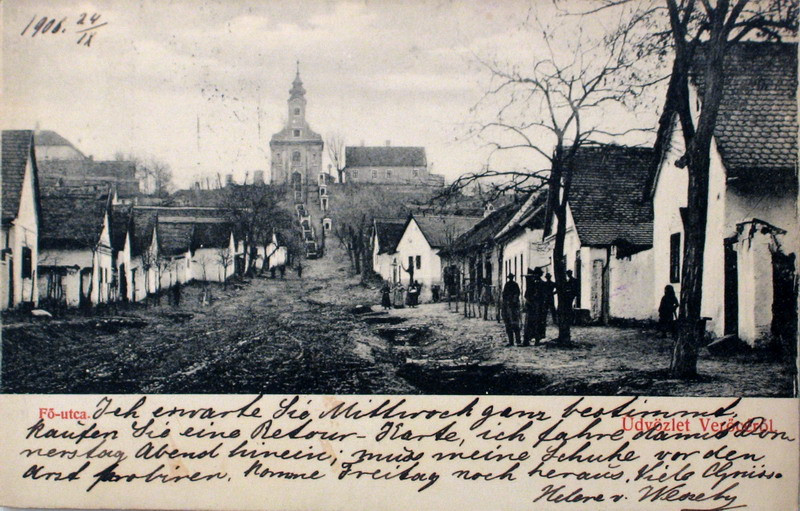 1906. 24/IX
Fő-utca.
Üdvözlet Verőcéről.
Ich erwarte Sie Mittwoch ganz bestimmt,
kaufen Sie eine Retour-Karte, ich fahre damit Don-
nerstag Abend hinein; muss meine Schuhe vor den
arzt probiren. Komme Freitag noch heraus. Viele Grüsse
Helene v.